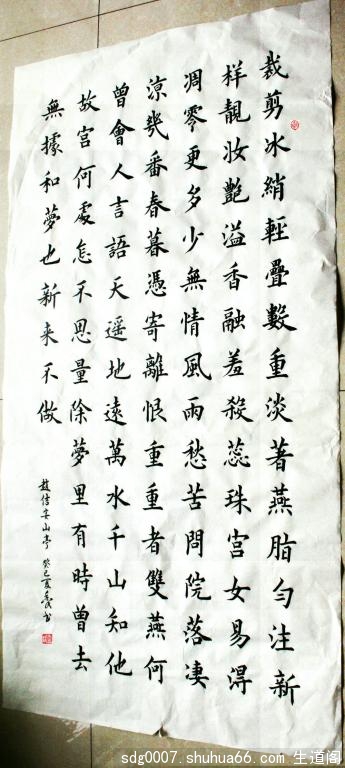 裁剪冰綃輕疊數重淡著燕脂勻注新
样靚妝艷溢香融羞殺蕊珠宮女易得
凋零更多少無情風雨愁苦問院落凄
涼幾番春暮憑寄離恨重重者雙燕何
曾會人言語天遥地遠萬水千山知他
故宮何處怎不思量除夢里有時曾去
無據和夢也新来不做
趙佶宴山亭 癸巳夏
sdg0007.shuhua66.com 生道阁